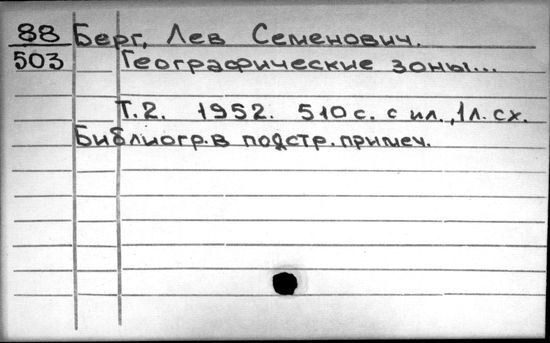 88 Берг, Лев Семенович.
503 Географические зоны...
Т.2. 1952. 510 с. с ил., 1л. сх.
Библиогр. в подстр. примеч.